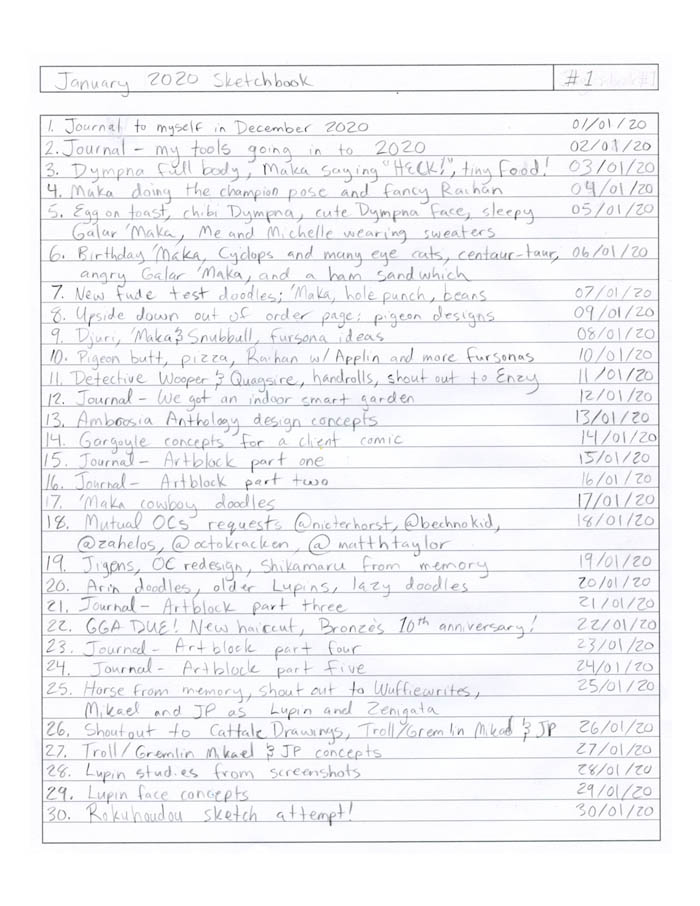 January 2020 Sketchbook #1
1. Journal to myself in December 2020 01/01/20
2. Journal - my tools going in to 2020 02/01/20
3. Dympna full body, Maka saying "HECK!", tiny food! 03/01/20
4. Maka doing the champion pose and fancy Raihan 04/01/20
5. Egg on toast, chibi Dympna, cute Dympna face, sleepy 05/01/20
Galar 'Maka, Me and Michelle wearing sweaters
6. Birthday 'Maka, Cyclops and many eye cats, centaur-taur, 06/01/20
angry Galar 'Maka, and a ham sandwhich
7. New fude test doodles; 'Maka, hole punch, beans 07/01/20
8. Upside down out of order page; pigeon designs 09/01/20
9. Djuri, 'Maka & Snubbull, fursona ideas 08/01/20
10. Pigeon butt, pizza, Raihan w/ Applin and more fursonas 10/01/20
11. Detective Wooper & Quagsire, handrolls, shout out to Enzy 11/01/20
12. Journal - We got an indoor smart garden 12/01/20
13. Ambrosia Anthology design concepts 13/01/20
14. Gargoyle concepts for a client comic 14/01/20
15. Journal - Artblock part one 15/01/20
16. Journal - Artblock part two 16/01/20
17. 'Maka cowboy doodles 17/01/20
18. Mutual OCs requests @nicterhorst, @bechnokid, 18/01/20
@zahelos, @octokracken, @matthtaylor
19. Jigens, OC redesign, Shikamaru from memory 19/01/20
20. Arin doodles, older Lupins, lazy doodles 20/01/20
21. Journal - Artblock part three 21/01/20
22. GGA DUE! New haircut, Bronze's 10th anniversary! 22/01/20
23. Journal - Artblock part four 23/01/20
24. Journal - Artblock part five 24/01/20
25. Horse from memory, shout out to Wuffiewrites, 25/01/20
Mikael and JP as Lupin and Zenigata
26. Shoutout to Cattale Drawings, Troll/Gremlin Mikael & JP 26/01/20
27. Troll/Gremlin Mikael & JP concepts 27/01/20
28. Lupin studies from screenshots 28/01/20
29. Lupin face concepts 29/01/20
30. Rokuhoudou sketch attempt! 30/01/20